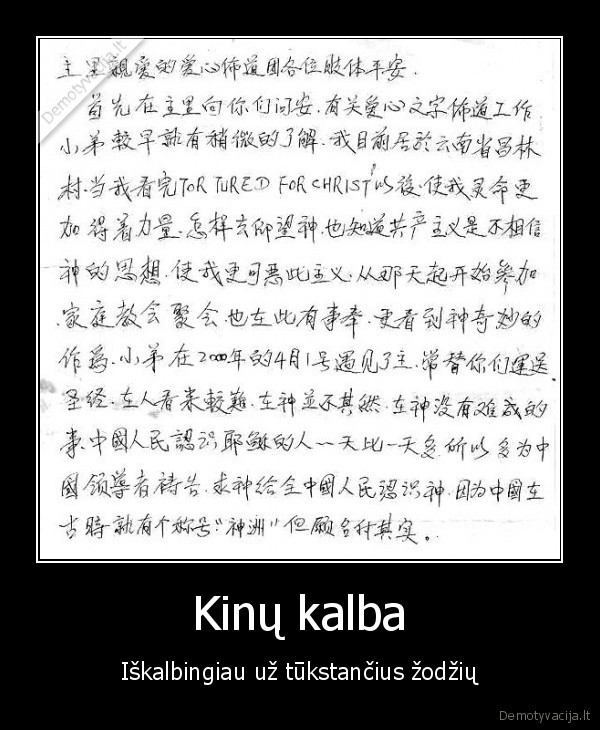 Demotyvacija.lt
主里親愛的爱心佈道团各位肢体平安.
首先在主里向你们问安.有关爱心文字佈道工作
小弟較早就有稍微的了解.我目前居於云南省昌林
村.当我看完TORTURED FOR CHRIST以後.使我灵命更
加得着力量.怎样去仰望神.也知道共产主义是不相信
神的思想.使我更可恶此主义.从那天起开始参加
家庭教会聚会.也在此有事奉.更看到神奇妙的
作為.小弟在2000年的4月1号遇见了主.常替你们運送
圣经.在人看来較難.在神並不其然.在神没有难成的
事.中國人民認识耶穌的人一天比一天多.所以多为中
國領導者祷告.求神给全中國人民認识神.因为中國在
古時就有个称号"神洲"但願名付其实。
Kinų kalba
Iškalbingiau už tūkstančius žodžių
Demotyvacija.lt